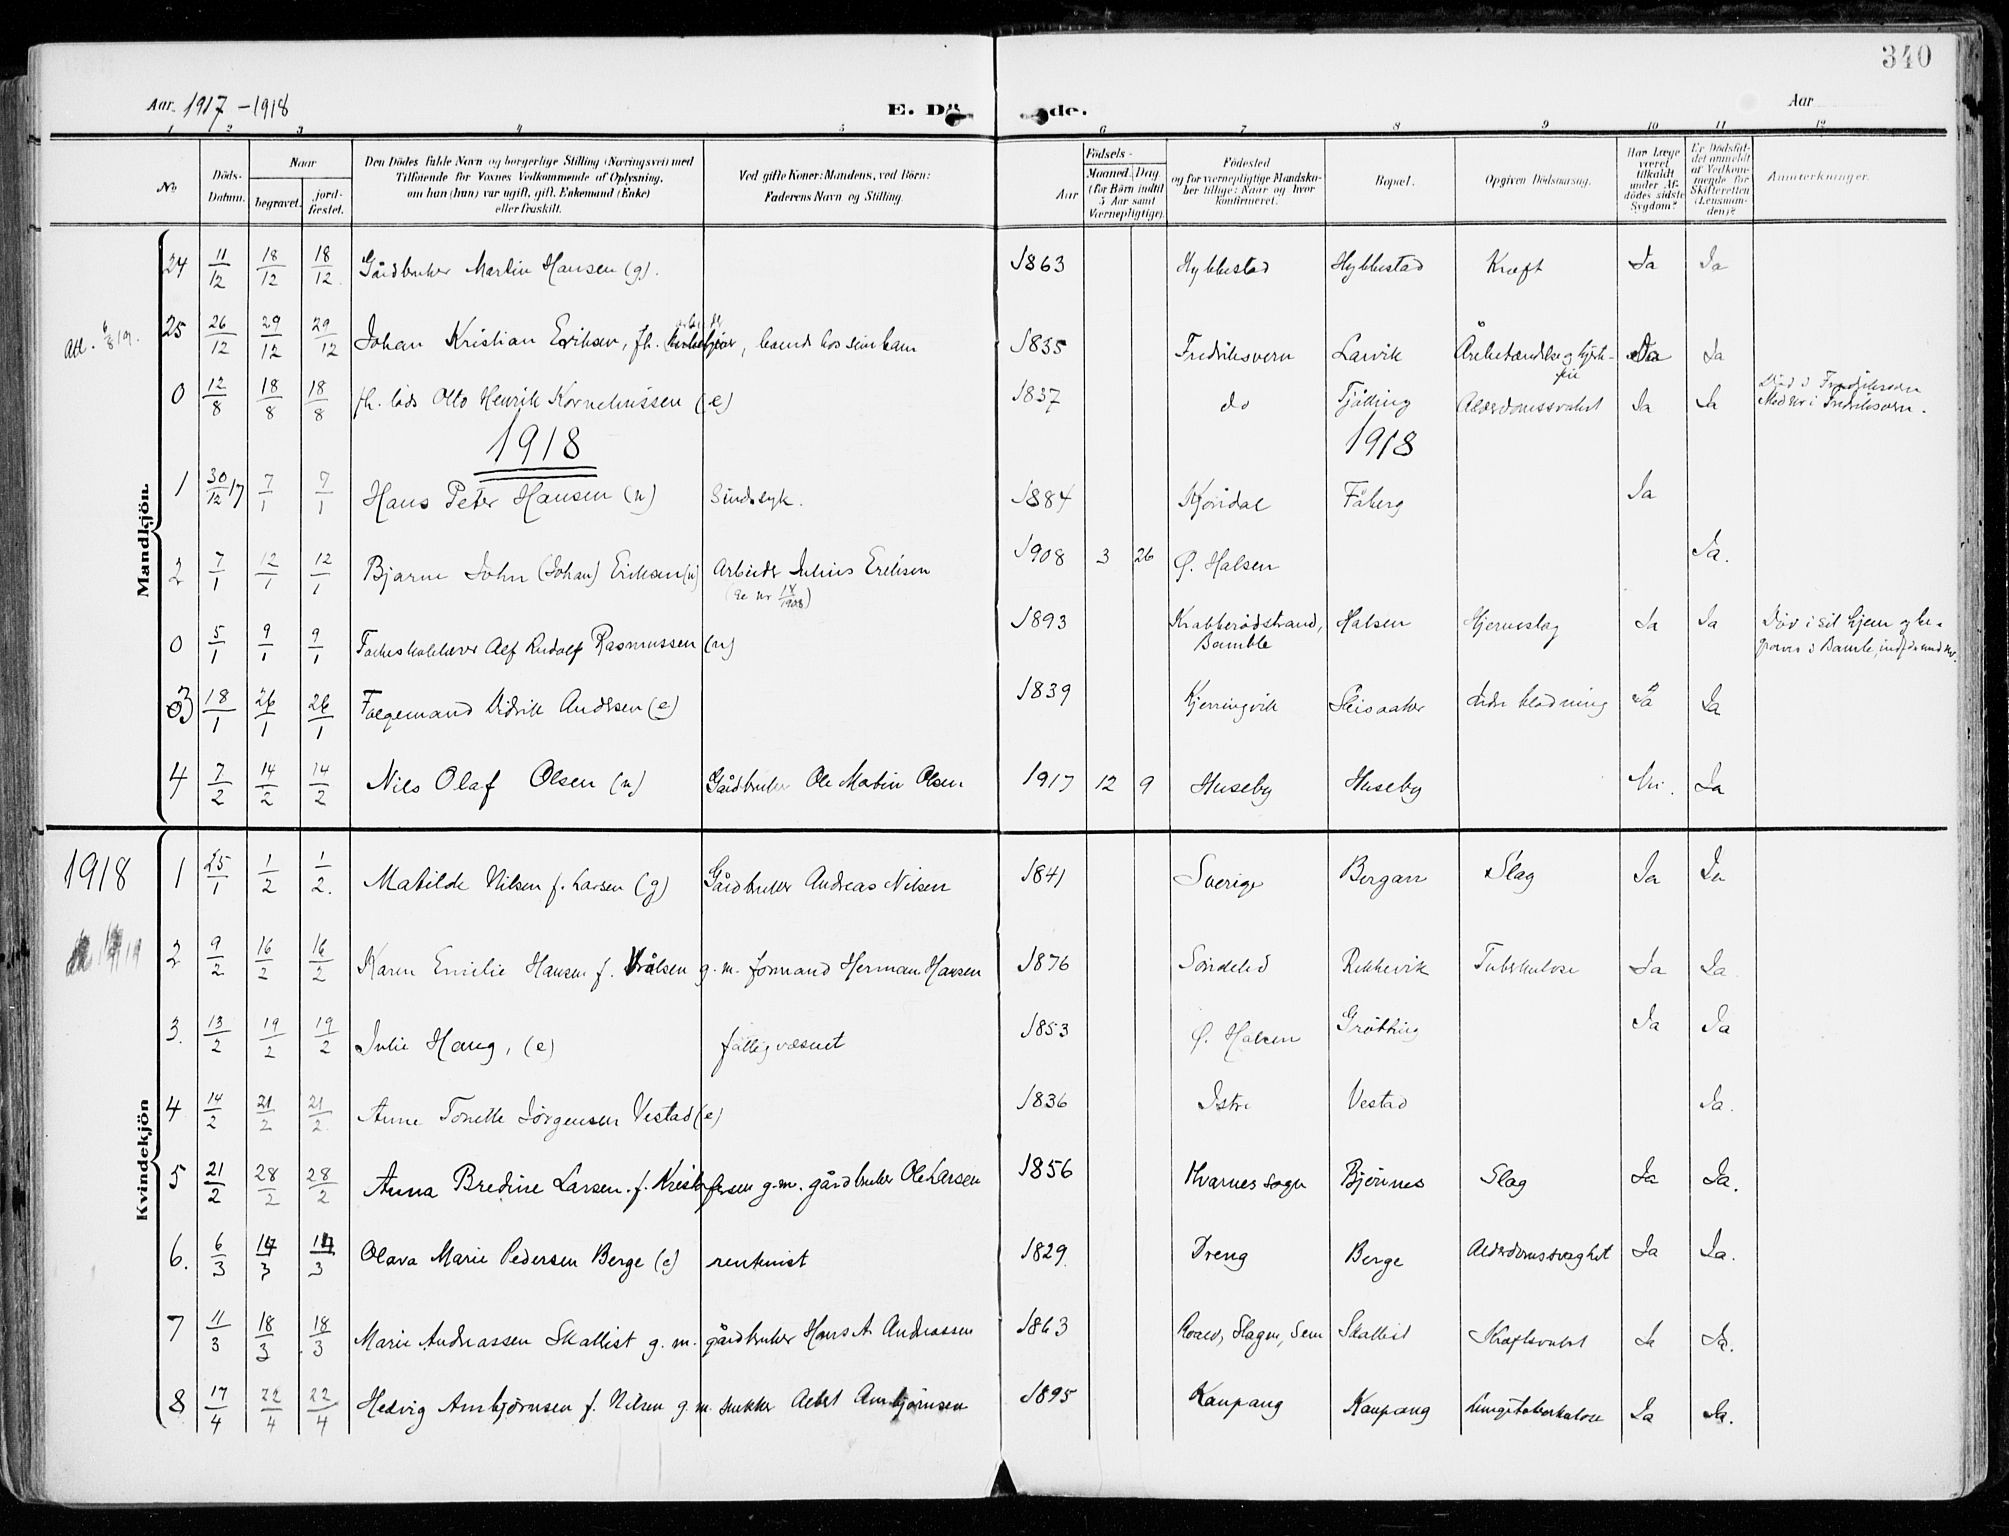 340
Aar 1917 - 1918
E. Dö de.
Aar
1 2 3 4 5 6 7 8 9 10 11 12
No
Döds-Datum.
Naar
begravet.
jord-fæstet.
Den Dödes fulde Navn og borgerlige Stilling (Næringsvei) med
Tilföiende for Voxnes Vedkommende af Oplysning,
om han (hun) var ugift, gift, Enkemand (Enke)
eller fraskilt.
Ved gifte Koner: Mandens, ved Börn:
Faderens Navn og Stilling.
Födsels-
Aar
Maaned. Dag
(for Börn indtil
5 Aar samt
Værnepligtige).
Födested
og for værnepligtige Mandska-
ber tillige: Naar og hvor
konfirmeret.
Bopæl.
Opgiven Dödsaarsag.
Har Læge
været
tilkaldt
under Af-
dödes sidste
Sygdom?
Er Dödsfal-
det anmeldt
af Vedkom-
mende for
Skifteretten
(Lensman-
den)?
Anmærkninger.
Mandkjön.
24 11/12 18/12 18/12 Gårdbruker Martin Hansen (g). 1863 Hybbestad Hybbestad Kræft Ja Ja
25 26/12 29/12 29/12 Johan Kristian Eriksen, fh. boende hos sin 1835 Fredriksvern Larvik Ja Ja
0 12/8 18/8 18/8 fh. lods Otto Henrik Korneliussen (e) 1837 do Tjølling Alderdomssvakhet Ja Ja Død i Fredriksvern
Med nr i Fredriksvern.
1918 1918
1 30/12 17 7/1 7/1 Hans Peter Hansen (u) Sindssyk. 1884 Kjøndal Fåberg Ja
2 7/1 12/1 12/1 Bjarne John (Johan) Eriksen (u) Arbeider Julius Eriksen 1908 3 26 Ø. Halsen Ja.
(se nr 14/1908)
0 5/1 9/1 9/1 Alf Rudolf Rasmussen (u) 1893 Krabberødstrand, Bamble Halsen Hjerneslag Ja Ja Død i sit hjem og be-
graves i Bamle,
3 18/1 26/1 26/1 Føgemand Didrik Andersen (e) 1839 Kjerringvik Skisaaker indre blødning Ja Ja
4 7/2 14/2 14/2 Nils Olaf Olsen (u) Gårdbruker Ole Martin Olsen 1917 12 9 Huseby Huseby Nei. Ja
Kvindekjön
1918
1 25/1 1/2 1/2. Matilde Nilsen f. Larsen (g) Gårdbruker Andreas Nilsen 1841 Sverige Bergan Slag Ja Ja
2 9/2 16/2 16/2 Karen Emilie Hansen f. Vrålsen g. m. formand Herman Hansen 1876 Søndeled Rekkevik Tuberkulose Ja Ja
3. 13/2 19/2 19/2 Julie Haug, (e) fattigvæsnet 1853 Ø. Halsen Grøtting Ja Ja
4 14/2 21/2 21/2 Anne Tonette Jørgensen Vestad (e) 1836 Istre Vestad Ja.
5 21/2 28/2 28/2 Anna Bredine Larsen. f. Kristofersen g.m. gårdbruker Ole Larsen 1856 Hvarnes sogn Bjønnes Slag Ja Ja.
6. 6/3 14/3 14/3 Olava Marie Pedersen Berge (e) rentenist 1829 Dreng Berge Alderdomssvaghet Ja Ja.
7 11/3 18/3 18/3 Marie Andreassen Skallist g. m. gårdbruker Hans A. Andreassen 1863 Slagen, Sem Skallist Kræftsvulst Ja Ja.
8 17/4 22/4 22/4 Hedvig Arnbjørnsen f. Nilsen g. m. snekker Albert Arnbjørnsen 1895 Kaupang Kaupang Lungetuberkulose Ja Ja.